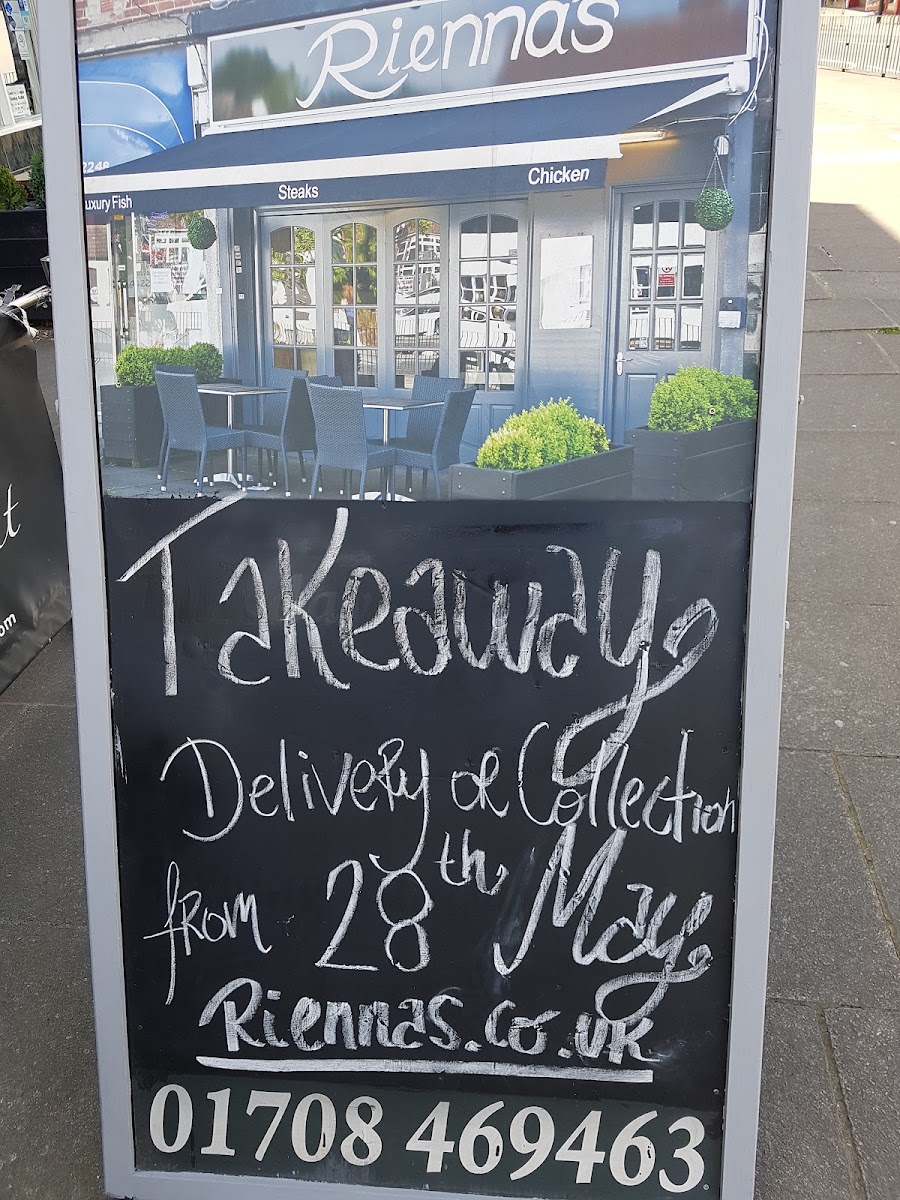 Rienna's
2248
uxury Fish
Steaks
Chicken
Takeaway
Delivery or Collection
from 28th May
Riennas.co.uk
01708 469463
t
om